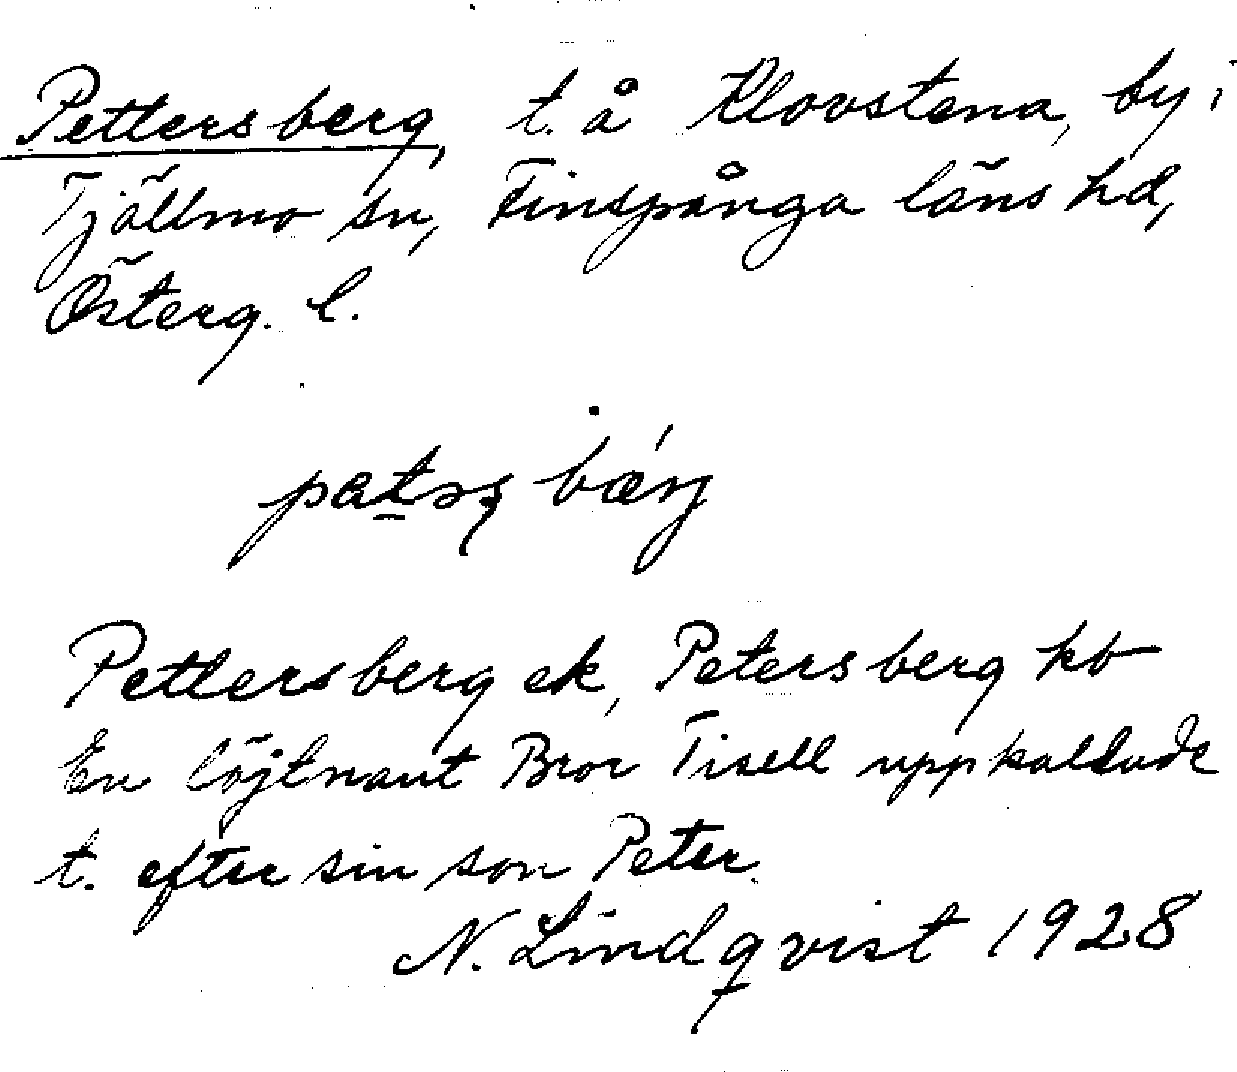 Pettersberg, t. å Klovstena, by i
Tjällmo sn, Finspånga läns hd,
Österg. l.
Pettersberg ek, Petersberg kb
En löjtnant Bror Tisell uppkallade
t. efter sin son Peter.
N. Lindqvist 1928